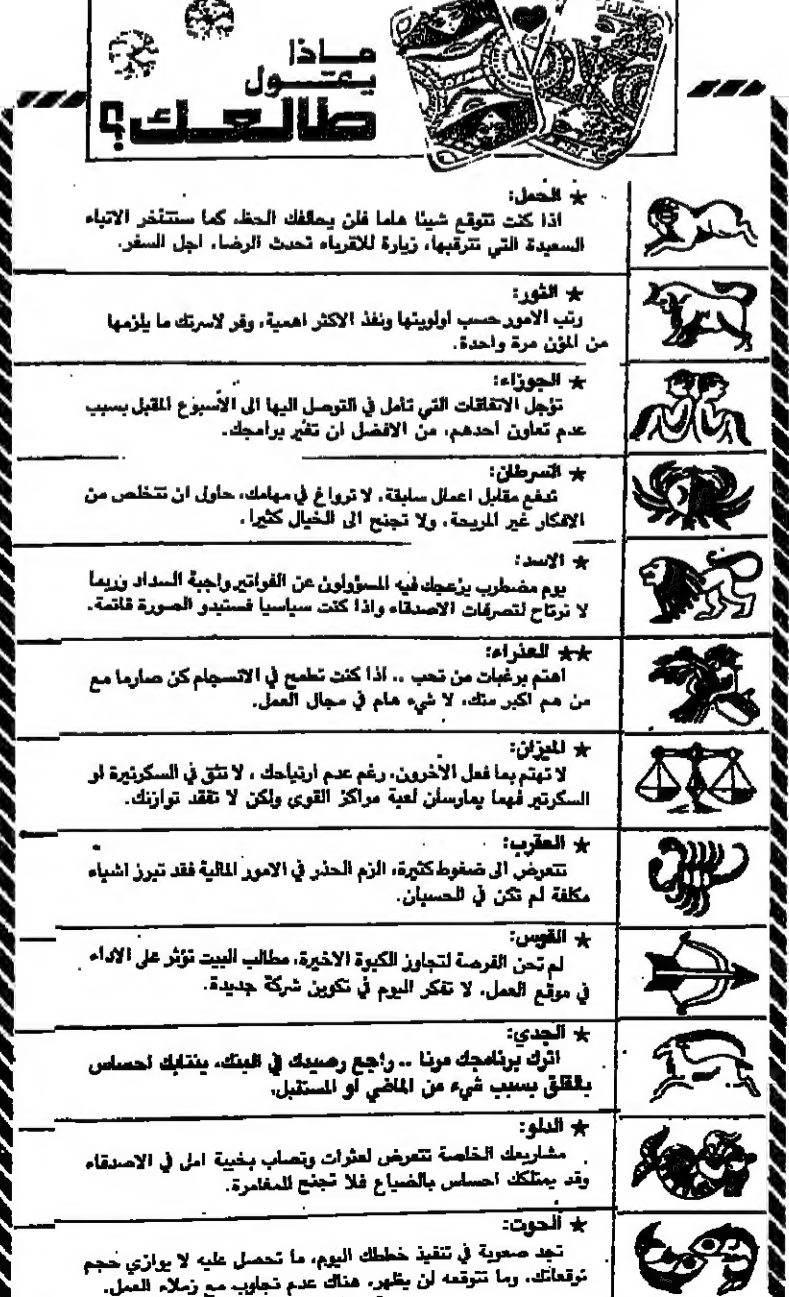 ماذا
يقول
طالعك؟
★ الحمل:
اذا كنت تتوقع شيئا هاما فلن يحالفك الحظ، كما ستتأخر الانباء
السعيدة التي تترقبها، زيارة للاقرباء تحدث الرضا، اجل السفر.
★ الثور:
رتب الامور حسب اولويتها ونفذ الاكثر اهمية، وفر لاسرتك ما يلزمها
من المؤن مرة واحدة.
★ الجوزاء:
تؤجل الاتفاقات التي تأمل في التوصل اليها الى الأسبوع المقبل بسبب
عدم تعاون أحدهم، من الافضل ان تغير برامجك.
★ السرطان:
تدفع مقابل اعمال سابقة، لا تراوغ في مهامك، حاول ان تتخلص من
الافكار غير المريحة، ولا تجنح الى الخيال كثيرا.
★ الاسد:
يوم مضطرب يزعجك فيه المسؤولون عن الفواتير واجبة السداد وربما
لا ترتاح لتصرفات الاصدقاء واذا كنت سياسيا فستبدو الصورة قاتمة.
★★ العذراء:
اهتم برغبات من تحب .. اذا كنت تطمح في الانسجام كن صارما مع
من هم اكبر منك، لا شيء هام في مجال العمل.
★ الميزان:
لا تهتم بما فعل الآخرون، رغم عدم ارتياحك، لا تثق في السكرتيرة او
السكرتير فهما يمارسان لعبة مراكز القوى ولكن لا تفقد توازنك.
★ العقرب:
تتعرض الى ضغوط كثيرة، الزم الحذر في الامور المالية فقد تبرز اشياء
مكلفة لم تكن في الحسبان.
★ القوس:
لم تحن الفرصة لتجاوز الكبوة الاخيرة، مطالب البيت تؤثر على الاداء
في موقع العمل، لا تفكر اليوم في تكوين شركة جديدة.
★ الجدي:
اترك برنامجك مرنا .. راجع رصيدك في البنك، ينتابك احساس
بالقلق بسبب شيء من الماضي او المستقبل.
★ الدلو:
مشاريعك الخاصة تتعرض لعثرات وتصاب بخيبة امل في الاصدقاء
وقد يمتلكك احساس بالضياع فلا تجنح للمغامرة.
★ الحوت:
تجد صعوبة في تنفيذ خططك اليوم، ما تحصل عليه لا يوازي حجم
توقعاتك، وما تتوقعه لن يظهر، هناك عدم تجاوب مع زملاء العمل.